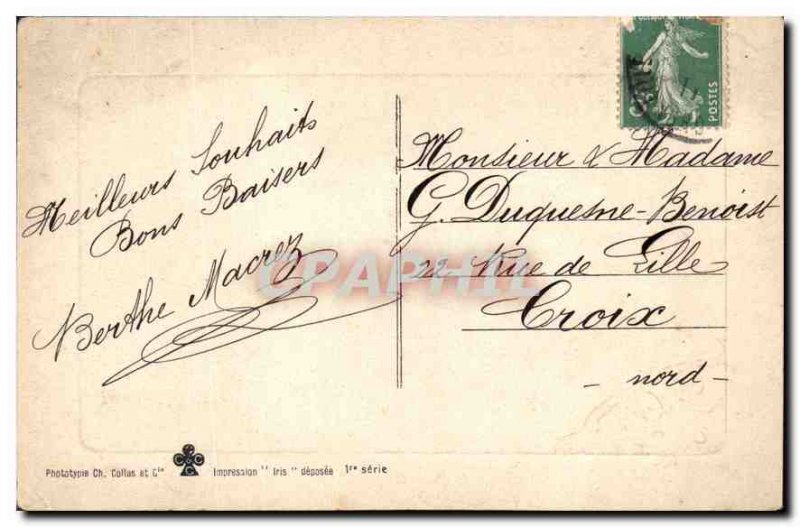 Meilleurs Souhaits
Bons Baisers
Berthe Macrez
POSTES
Monsieur & Madame
G. Duquesne-Benoist
22 Rue de Lille
Croix
- nord -
CPAPHIL
Phototypie Ch. Collas et Cie
C C C
Impression " Iris " déposée 1re série